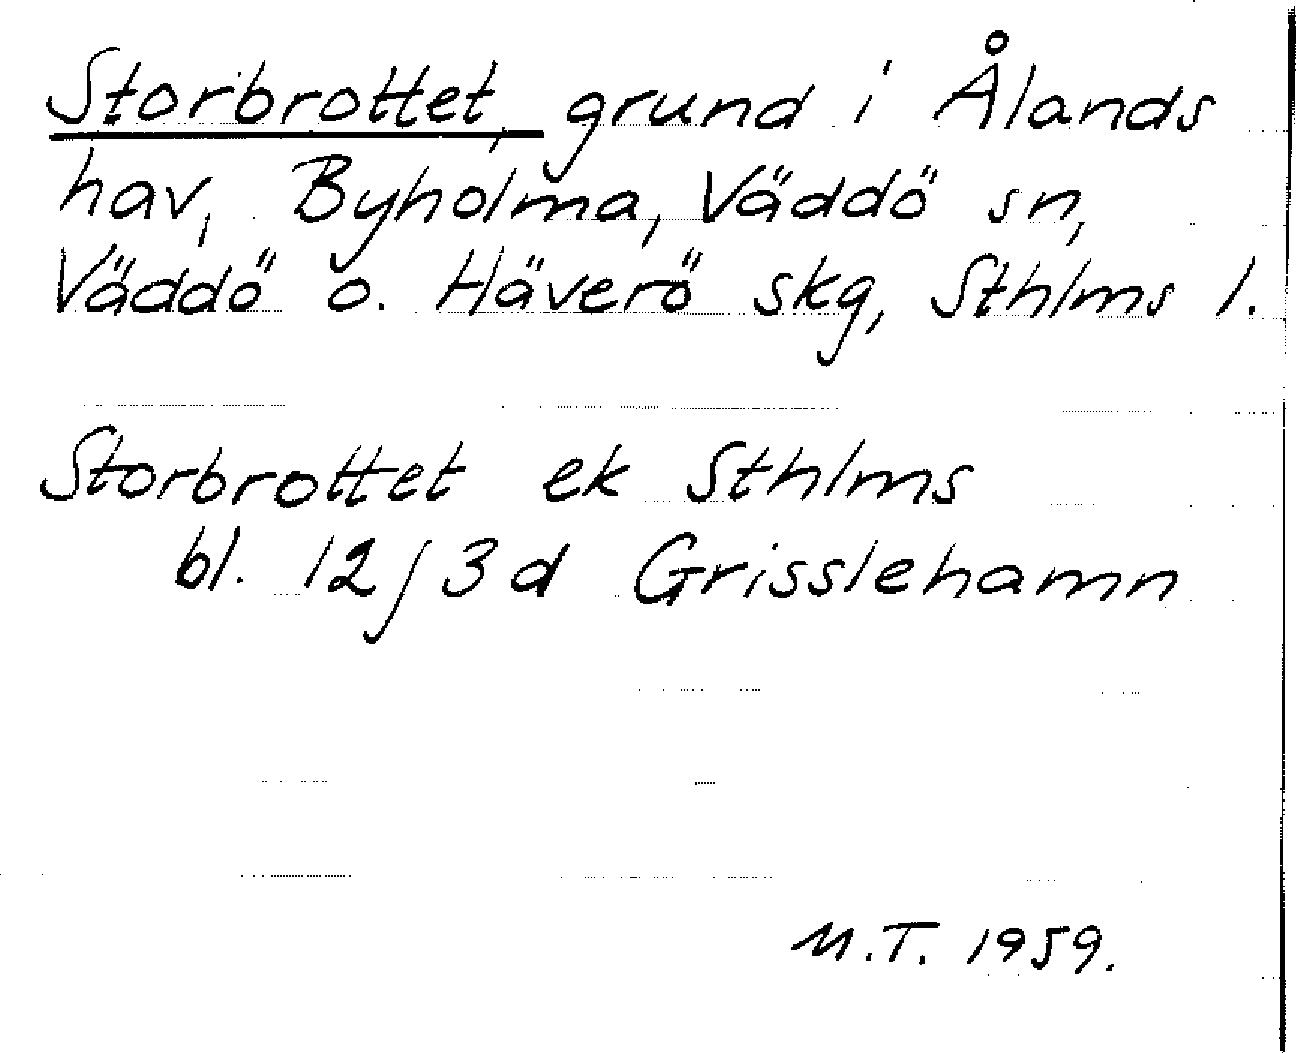 Storbrottet, grund i Ålands
hav, Byholma, Väddö sn,
Väddö o. Häverö skg, Sthlms l.
Storbrottet ek Sthlms
bl. 12j 3d Grisslehamn
M.T. 1959.